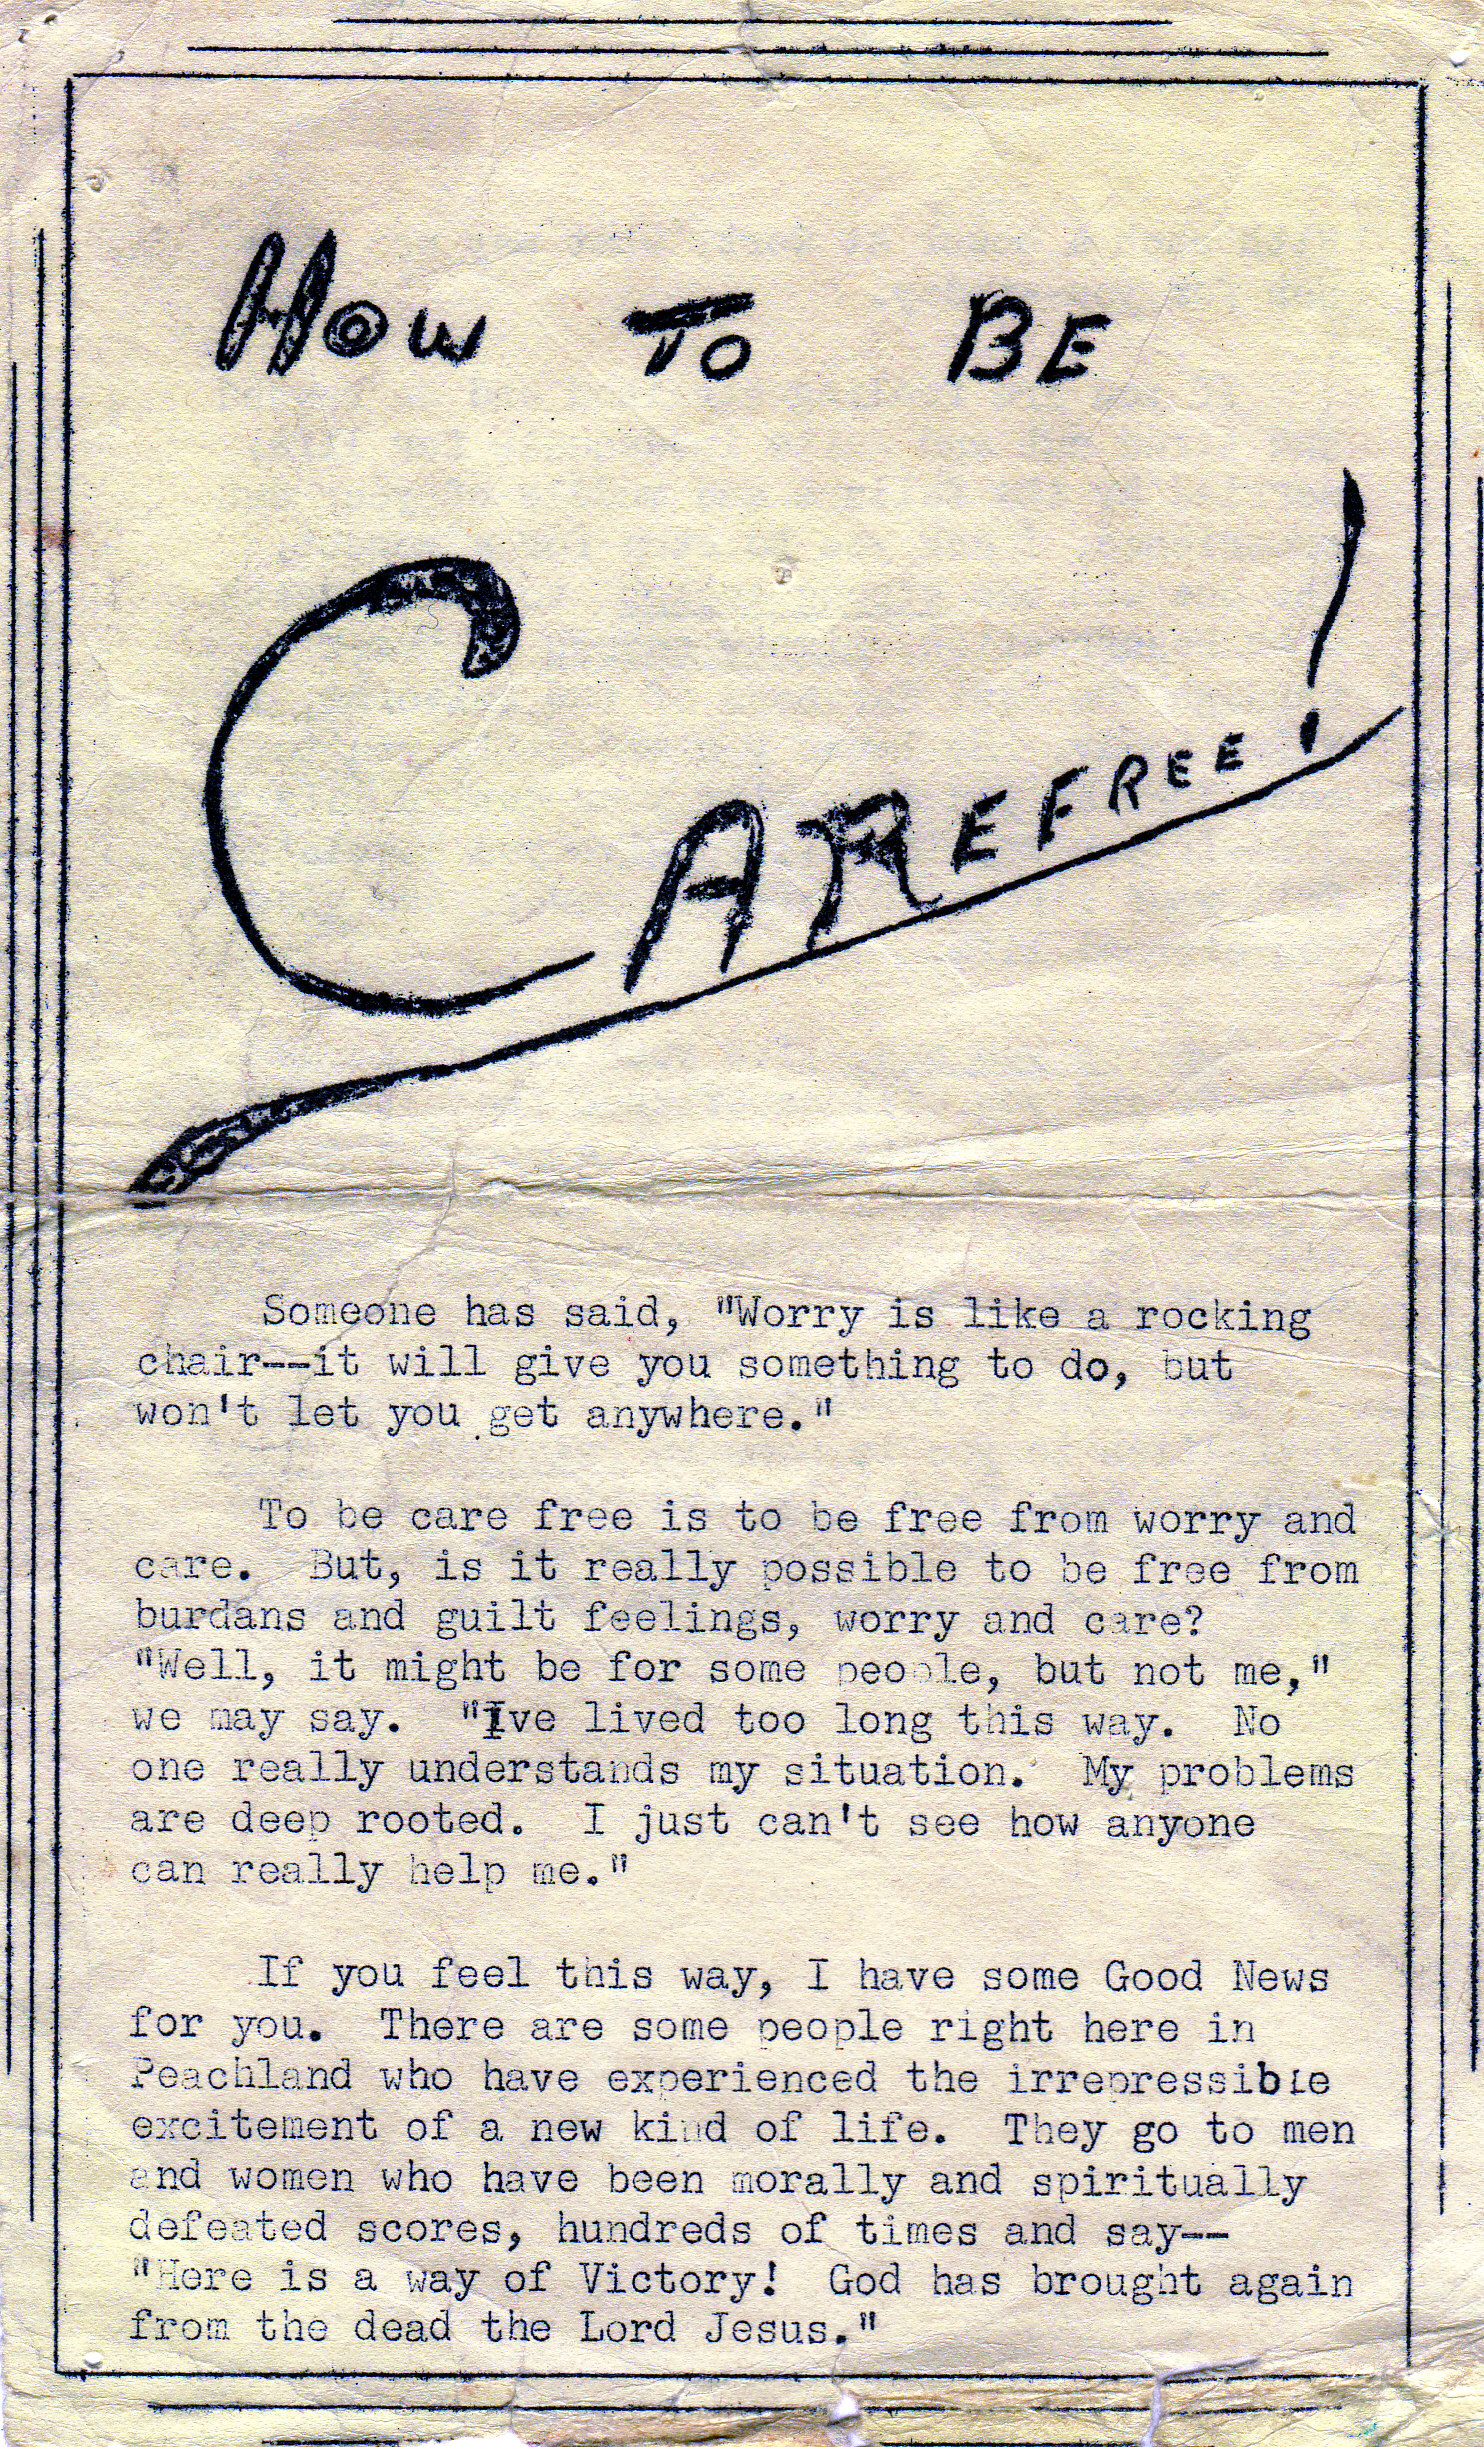 HOW TO BE
CAREFREE!
Someone has said, "Worry is like a rocking
chair--it will give you something to do, but
won't let you get anywhere."
To be care free is to be free from worry and
care. But, is it really possible to be free from
burdans and guilt feelings, worry and care?
"Well, it might be for some people, but not me,"
we may say. "Ive lived too long this way. No
one really understands my situation. My problems
are deep rooted. I just can't see how anyone
can really help me."
If you feel this way, I have some Good News
for you. There are some people right here in
Peachland who have experienced the irrepressible
excitement of a new kind of life. They go to men
and women who have been morally and spiritually
defeated scores, hundreds of times and say--
"Here is a way of Victory! God has brought again
from the dead the Lord Jesus."